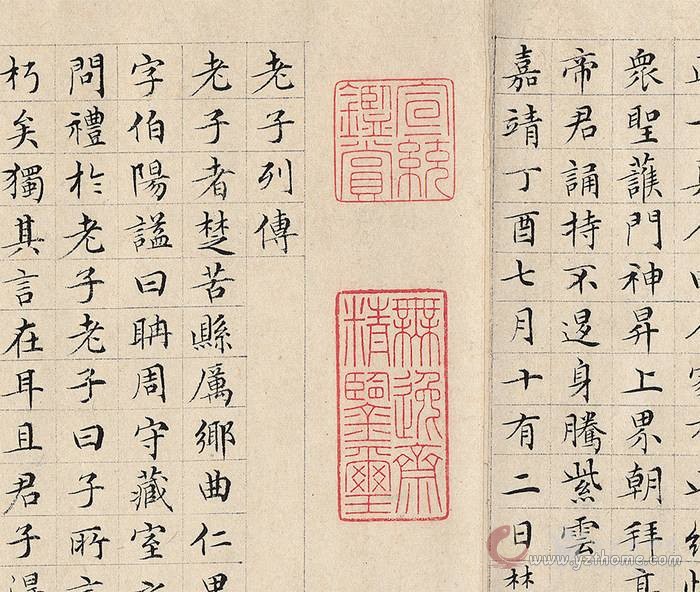 衆聖護門神昇上界朝拜高
帝君誦持不退身騰紫雲
嘉靖丁酉七月十有二日
宣統鑑賞
無逸齋精鑒璽
老子列傳
老子者楚苦縣厲鄉曲仁里
字伯陽謚曰耼周守藏室之
問禮於老子老子曰子所言
朽矣獨其言在耳且君子得
www.yzthome.com